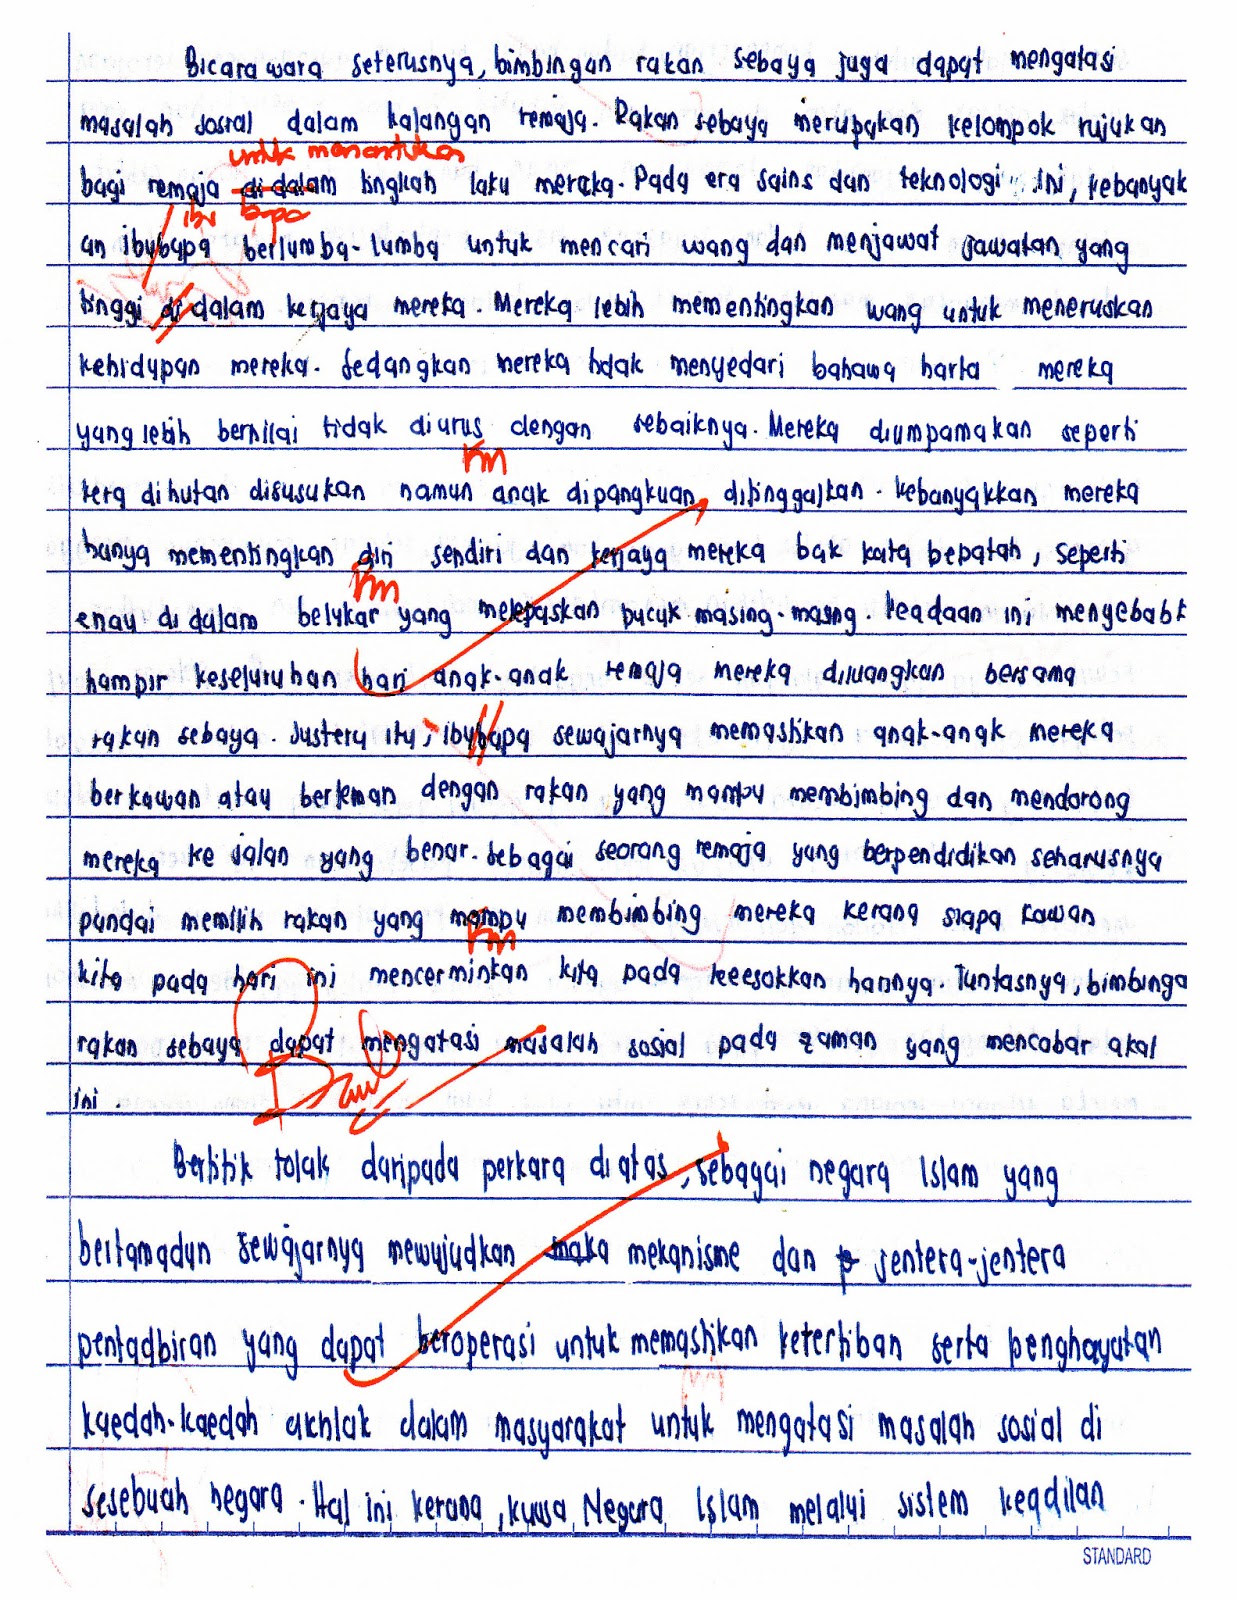 Bicarawara seterusnya, bimbingan rakan sebaya juga dapat mengatasi
masalah sosial dalam kalangan remaja. Rakan sebaya merupakan kelompok rujukan
untuk menentukan
bagi remaja di dalam tingkah laku mereka. Pada era sains dan teknologi ini, kebanyak
ibu bapa
an ibubapa berlumba-lumba untuk mencari wang dan menjawat jawatan yang
tinggi di dalam kerjaya mereka. Mereka lebih mementingkan wang untuk meneruskan
kehidupan mereka. Sedangkan mereka tidak menyedari bahawa harta mereka
yang lebih bernilai tidak diurus dengan sebaiknya. Mereka diumpamakan seperti
KM
kera dihutan disusukan namun anak dipangkuan ditinggalkan. Kebanyakkan mereka
hanya mementingkan diri sendiri dan kerjaya mereka bak kata bepatah, seperti
KM
enau di dalam belukar yang melepaskan pucuk masing-masing. Keadaan ini menyebabk
hampir keseluruhan hari anak-anak remaja mereka diluangkan bersama
rakan sebaya. Justeru itu, ibubapa sewajarnya memastikan anak-anak mereka
berkawan atau berteman dengan rakan yang mampu membimbing dan mendorong
mereka ke jalan yang benar. Sebagai seorang remaja yang berpendidikan seharusnya
pandai memilih rakan yang mampu membimbing mereka kerana siapa kawan
KM
kita pada hari ini mencerminkan kita pada keesokkan harinnya. Tuntasnya, bimbinga
rakan sebaya dapat mengatasi masalah sosial pada zaman yang mencabar akal
ini.
Bertitik tolak daripada perkara di atas, sebagai negara Islam yang
bertamadun sewajarnya mewujudkan maka mekanisme dan p jentera-jentera
pentadbiran yang dapat beroperasi untuk memastikan ketertiban serta penghayatan
kaedah-kaedah akhlak dalam masyarakat untuk mengatasi masalah sosial di
sesebuah negara. Hal ini kerana, kuasa Negara Islam melalui sistem keadilan
STANDARD